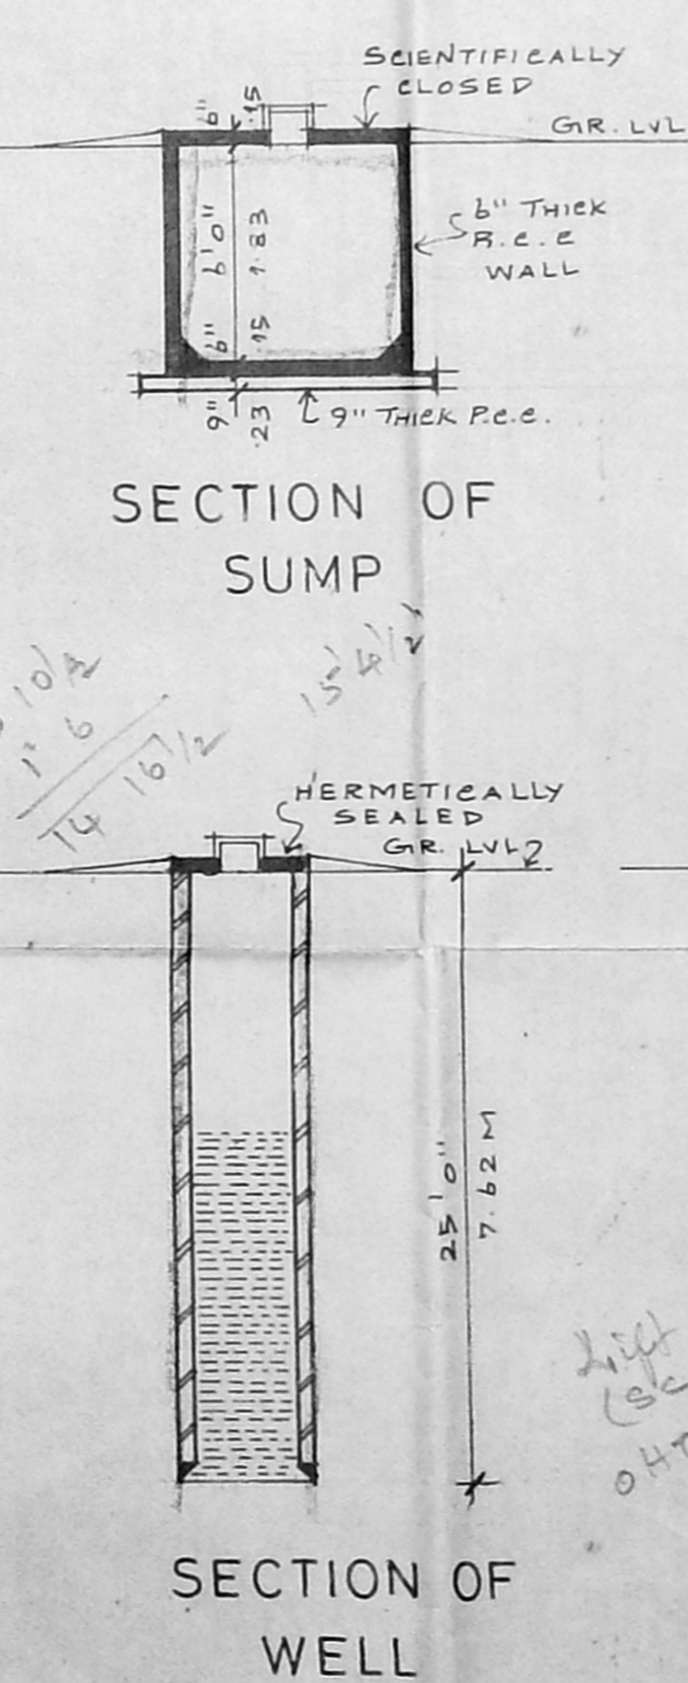 SCIENTIFICALLY
CLOSED
GR. LVL
6" .15
6'0" 1.83
6" .15
9" .23
6" THICK
R.C.C
WALL
9" THICK P.C.C.
SECTION OF
SUMP
10 1/2
1' 6
14 16 1/2
15' 4 1/2
HERMETICALLY
SEALED
GR. LVL
25'0"
7.62 M
Lift
(SC
OHT
SECTION OF
WELL